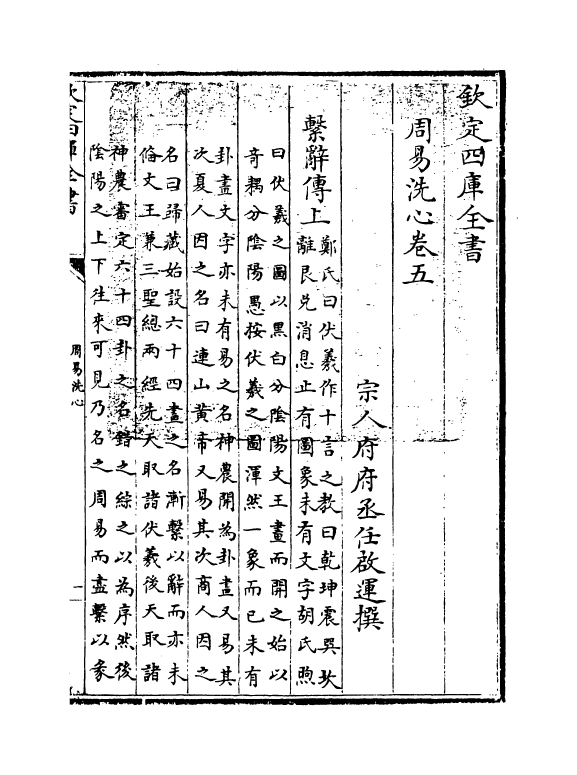 欽定四庫全書
周易洗心卷五
宗人府府丞任啟運撰
繫辭傳上
鄭氏曰伏羲作十言之教曰乾坤震巽坎
離艮兌消息止有圖象未有文字胡氏煦
曰伏羲之圖以黑白分陰陽文王畫而開之始以
奇耦分陰陽愚按伏羲之圖渾然一象而已未有
卦畫文字亦未有易之名神農開為卦畫又易其
次夏人因之名曰連山黄帝又易其次商人因之
名曰歸藏始設六十四畫之名漸繫以辭而亦未
俻文王兼三聖總兩經先天取諸伏羲後天取諸
神農審定六十四卦之名錯之綜之以為序然後
陰陽之上下往來可見乃名之周易而盡繫以彖
欽定四庫全書
周易洗心
一